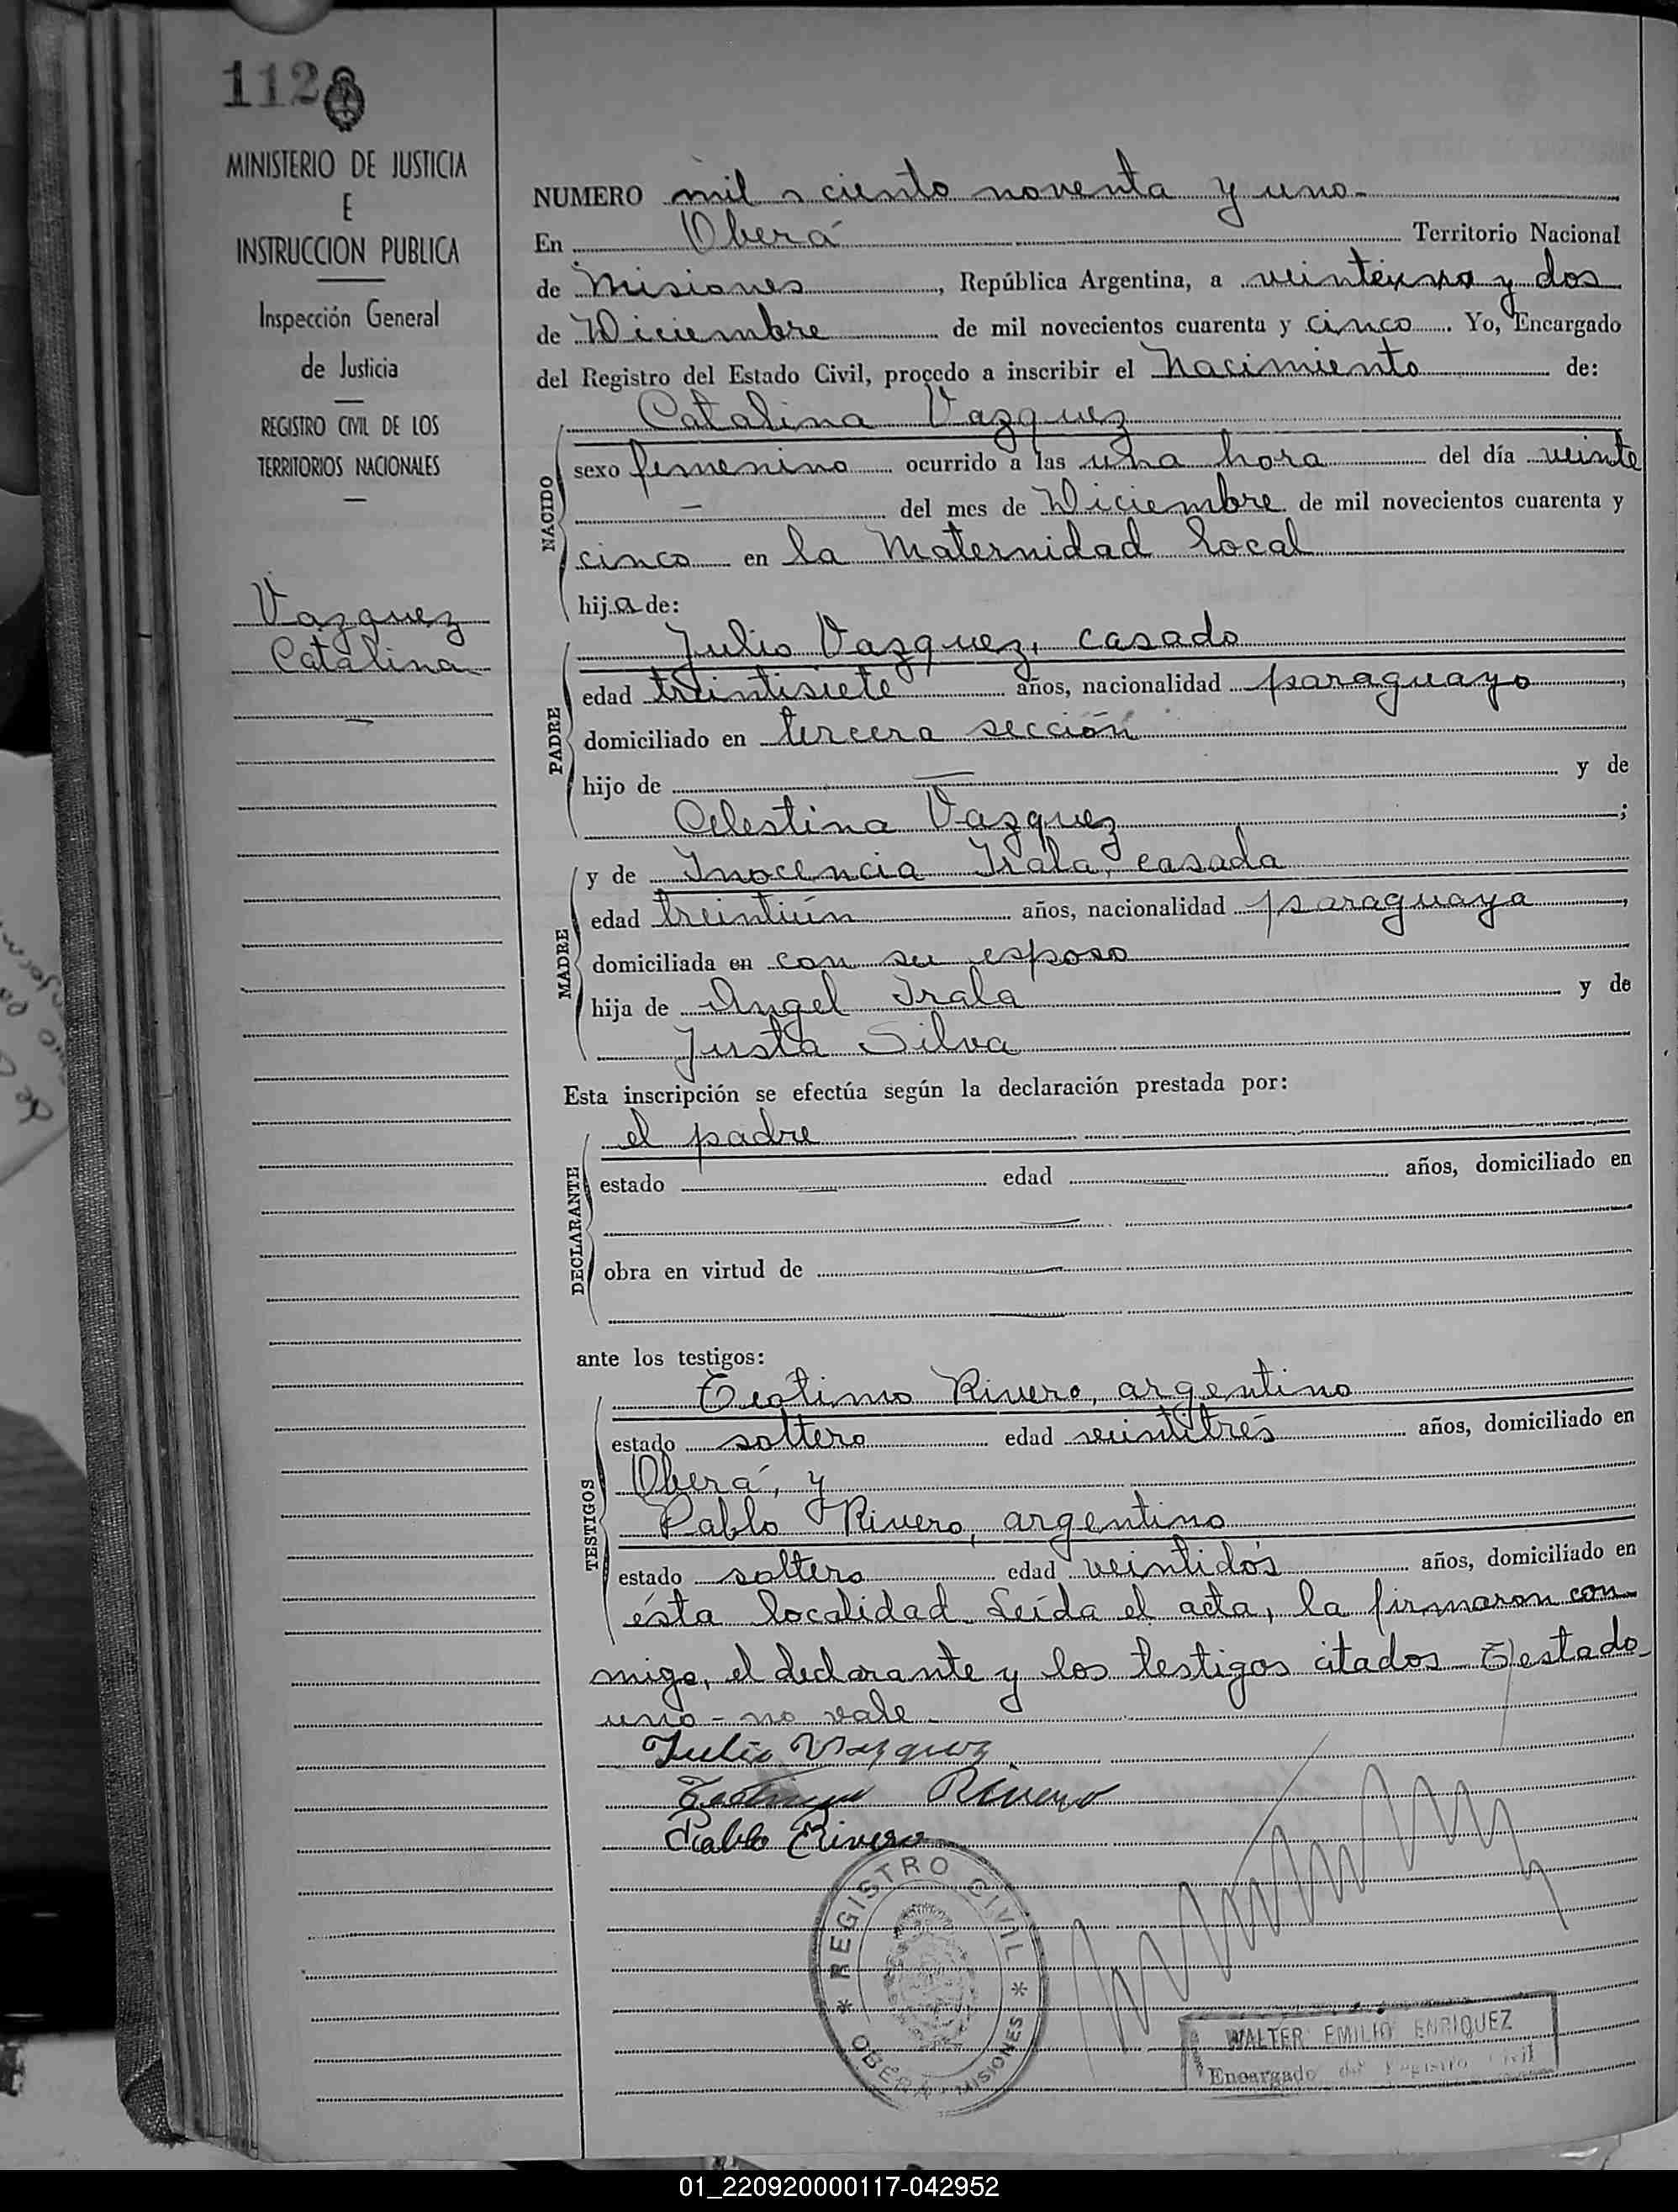 112
MINISTERIO DE JUSTICIA
E
INSTRUCCION PUBLICA
Inspección General
de Justicia
REGISTRO CIVIL DE LOS
TERRITORIOS NACIONALES
Vazquez
Catalina
NUMERO mil ciento noventa y uno
En Oberá Territorio Nacional
de Misiones, República Argentina, a y dos
de Diciembre de mil novecientos cuarenta y cinco. Yo, Encargado
del Registro del Estado Civil, procedo a inscribir el Nacimiento de:
NACIDO
Catalina Vazquez
sexo femenino ocurrido a las una hora del día veinte
— del mes de Diciembre de mil novecientos cuarenta y
cinco en la Maternidad local
hija de:
PADRE
Julio Vazquez, casado
edad treintisiete años, nacionalidad paraguayo,
domiciliado en tercera sección
hijo de — y de
Celestina Vazquez;
MADRE
y de Inocencia Irala, casada
edad treintiún años, nacionalidad paraguaya,
domiciliada en con su esposo
hija de Angel Irala y de
Justa Silva
Esta inscripción se efectúa según la declaración prestada por:
DECLARANTE
el padre
estado — edad — años, domiciliado en
—
obra en virtud de —
—
ante los testigos:
TESTIGOS
Teotimo Rivero, argentino
estado soltero edad veintitrés años, domiciliado en
Oberá, y
Pablo Rivero, argentino
estado soltero edad veintidós años, domiciliado en
ésta localidad. Leída el acta, la firmaron con-
migo, el declarante y los testigos citados. Testado
uno - no vale.
Julio Vazquez
Teotimo Rivero
Pablo Rivero
REGISTRO CIVIL
* OBERÁ - MISIONES *
WALTER EMILIO ENRIQUEZ
Encargado del Registro Civil
01_220920000117-042952